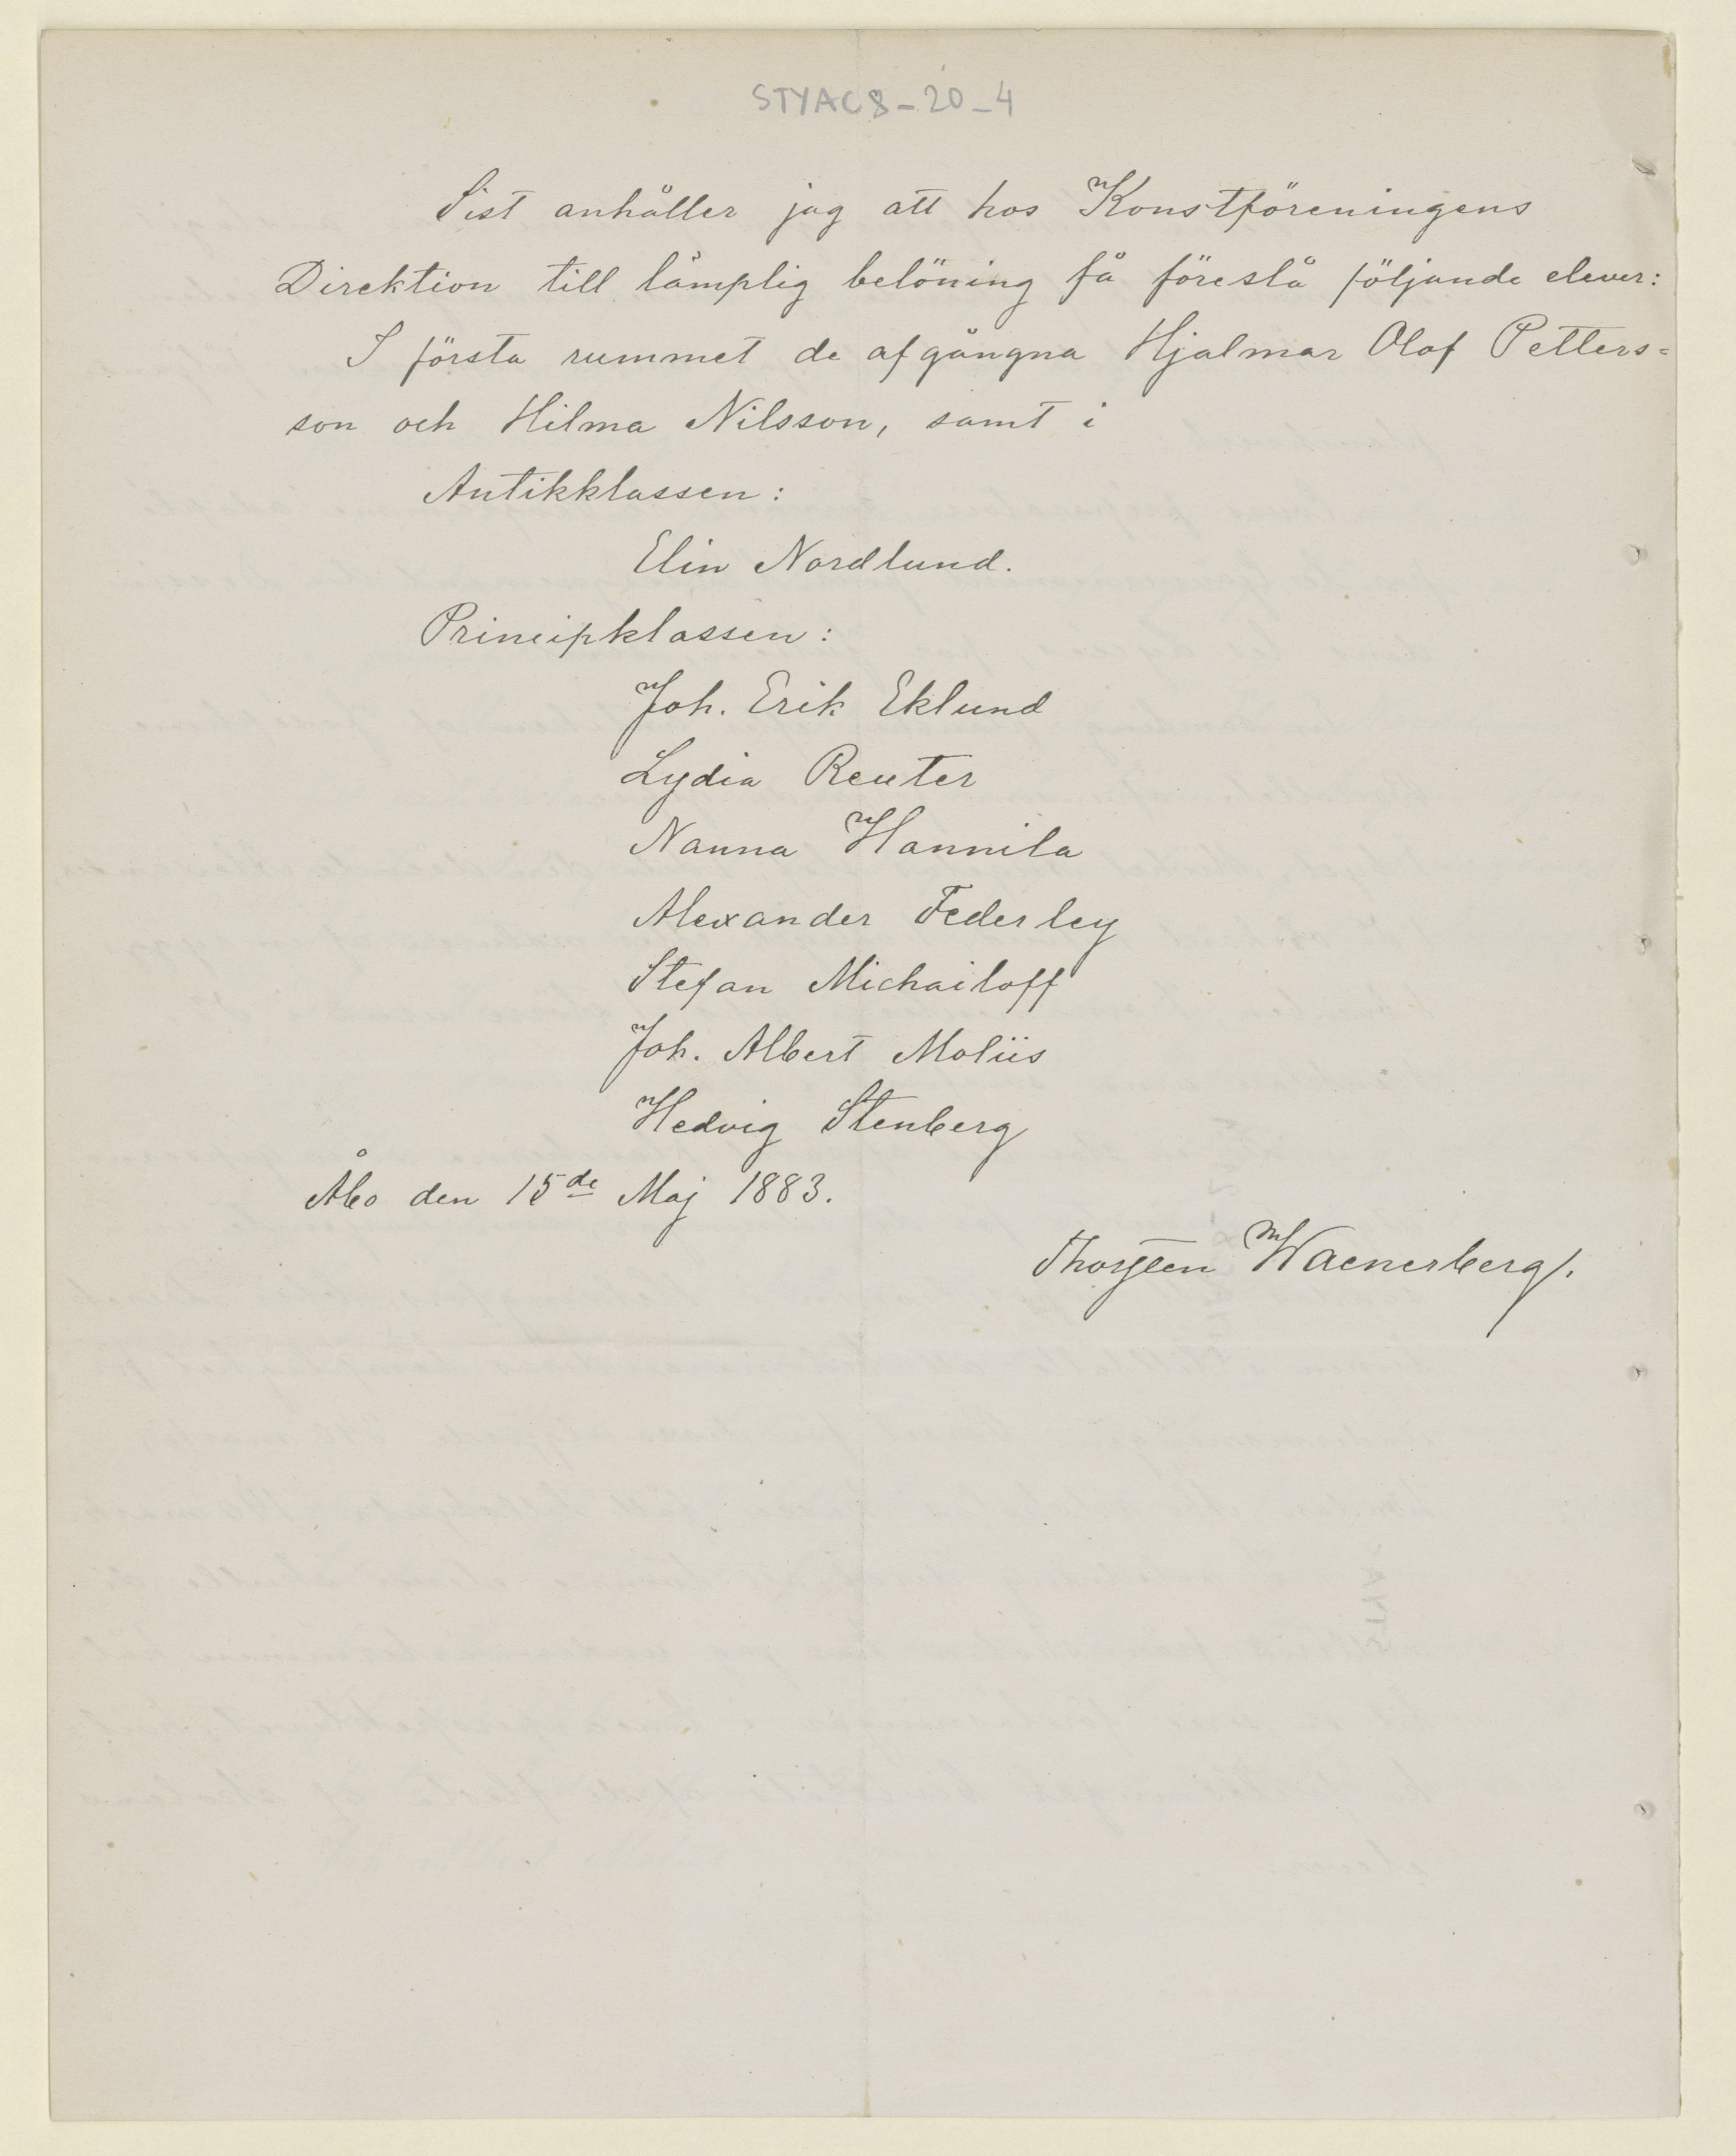 STYAC8-20-4
Sist anhåller jag att hos Konstföreningens
Direktion till lämplig belöning få föreslå följande elever:
I första rummet de afgångna Hjalmar Olof Petters=
son och Hilma Nilsson, samt i
Antikklassen:
Elin Nordlund.
Principklassen:
Joh. Erik Eklund
Lydia Reuter
Nanna Hannila
Alexander Federley
Stefan Michailoff
Joh. Albert Moliis
Hedvig Stenberg
Åbo den 15de Maj 1883.
Thorsten Waenerberg.